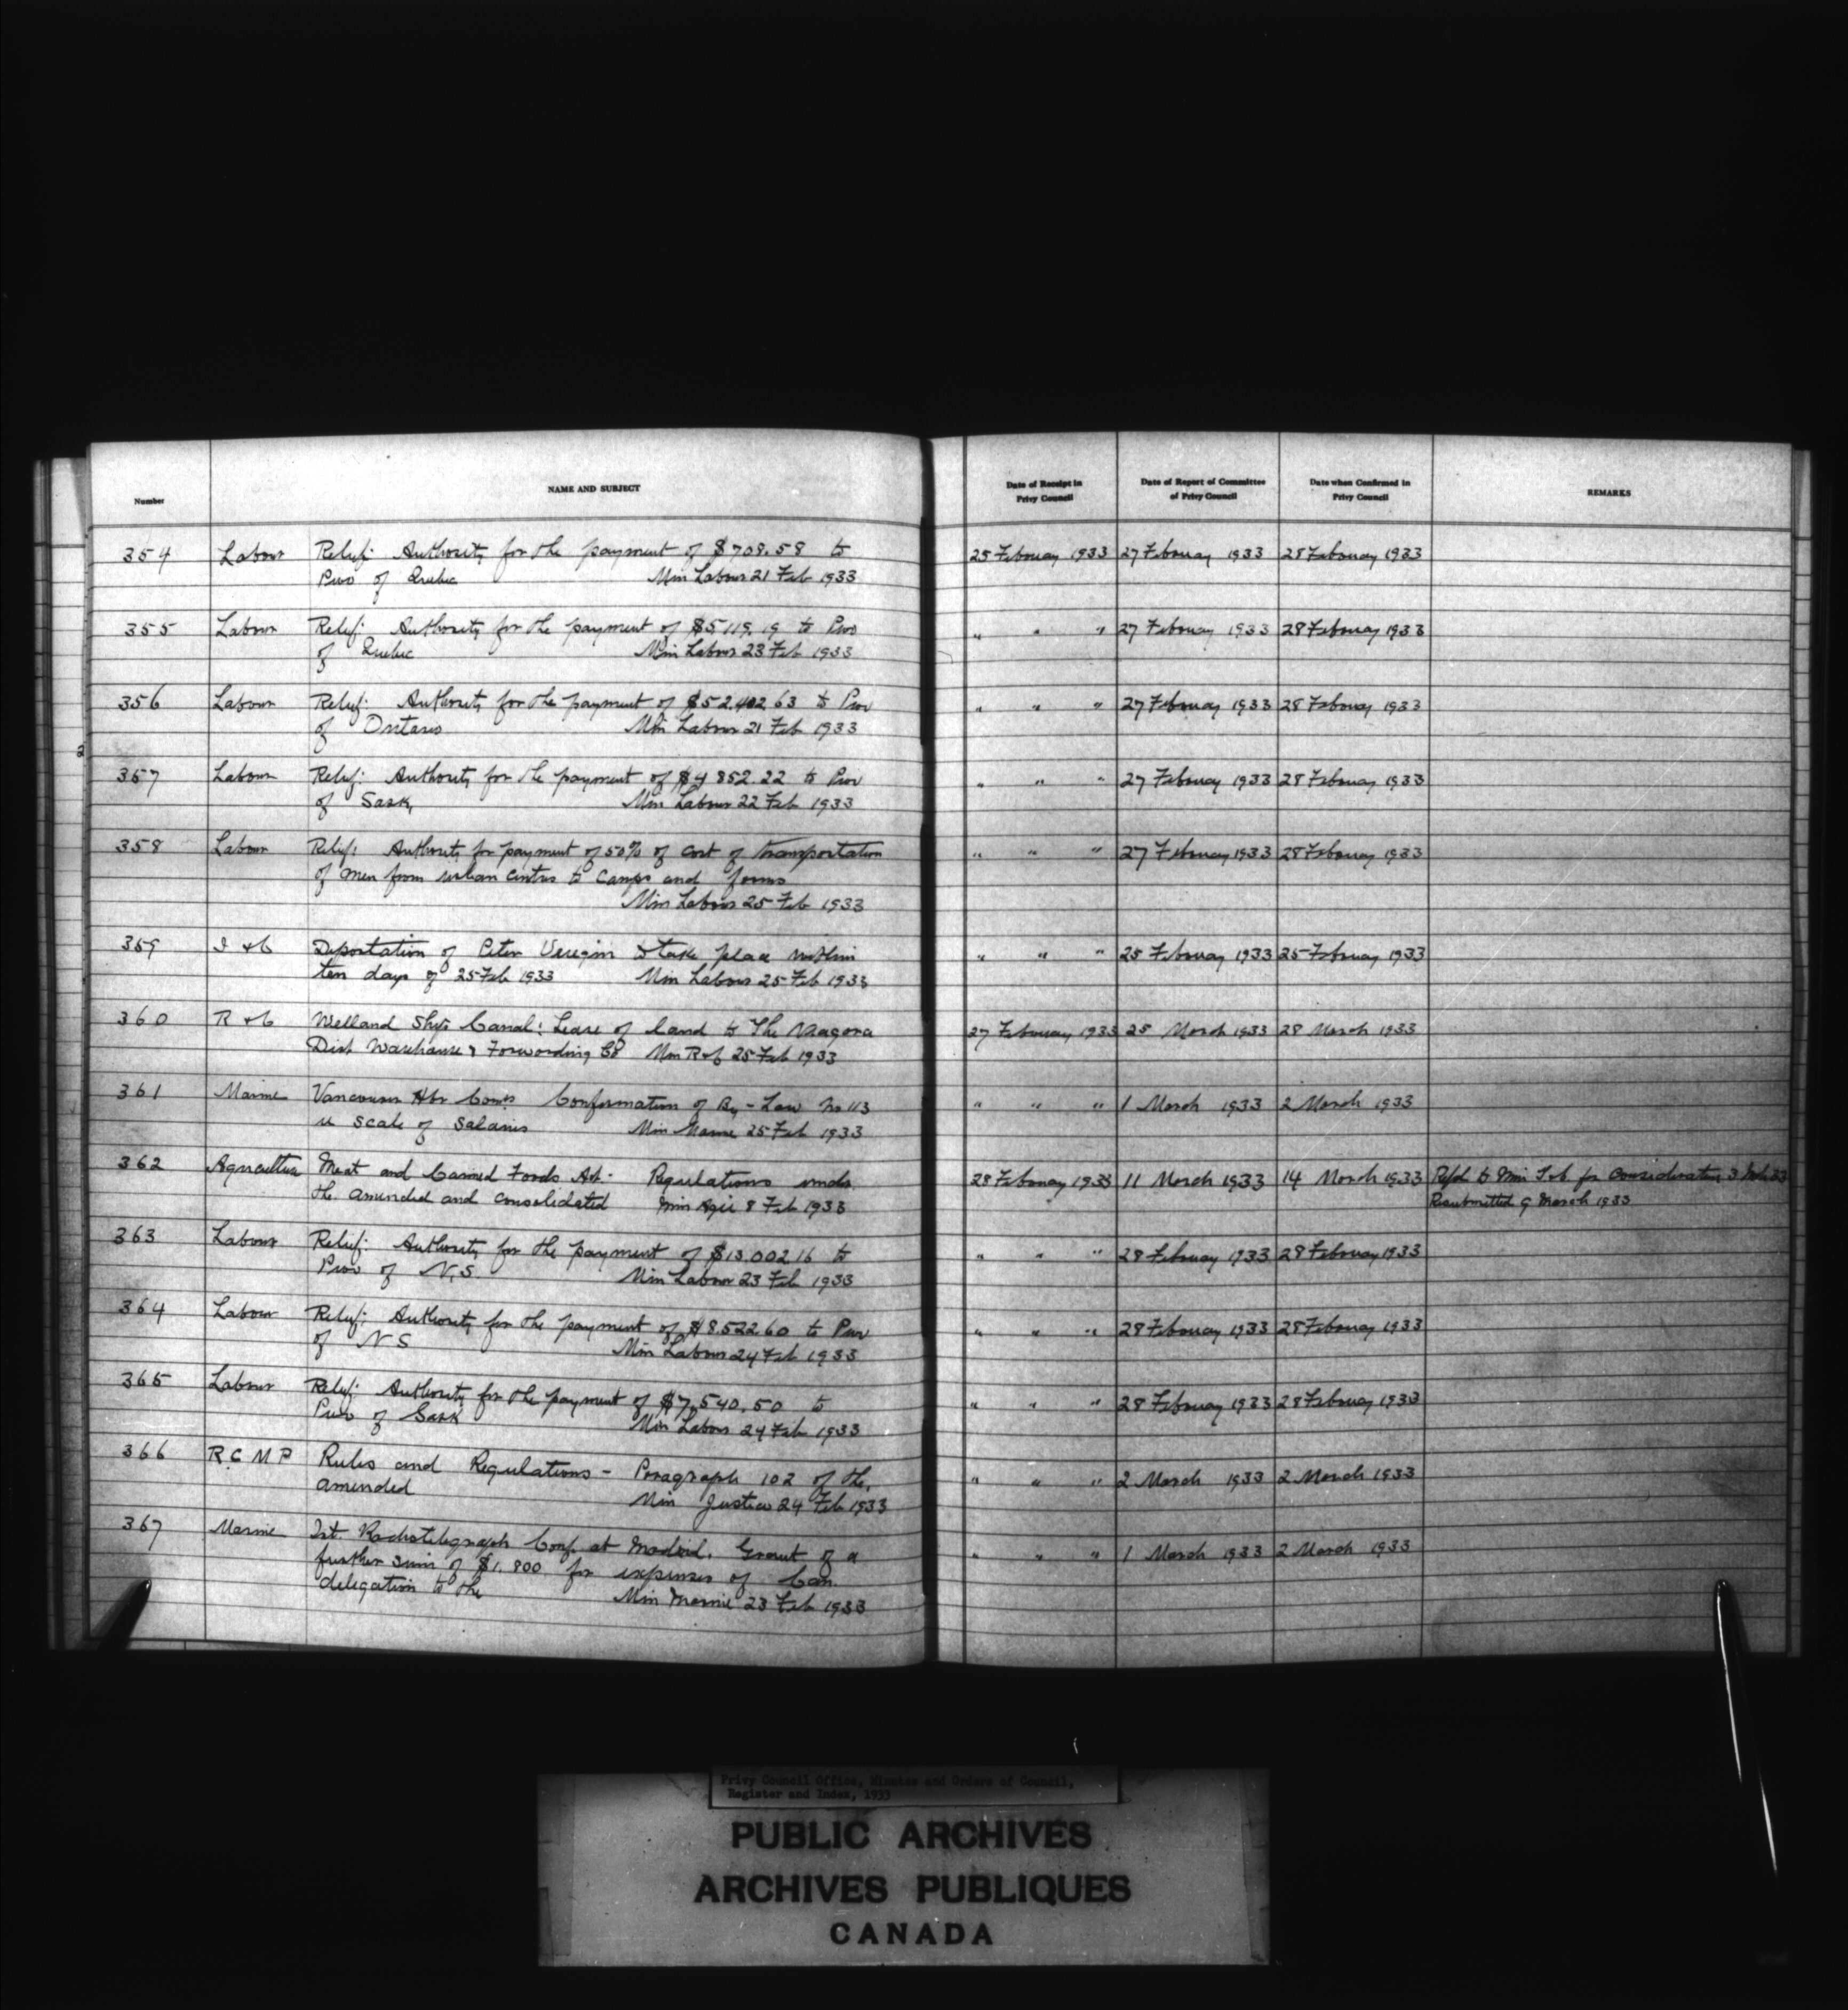 Number
NAME AND SUBJECT
Date of Receipt in Privy Council
Date of Report of Committee of Privy Council
Date when Confirmed in Privy Council
REMARKS
354 Labour Relief: Authority for the payment of $708.58 to 25 February 1933 27 February 1933 28 February 1933
Prov of Quebec Min Labour 21 Feb 1933
355 Labour Relief: Authority for the payment of $5119.19 to Prov " " " 27 February 1933 28 February 1933
of Quebec Min Labour 23 Feb 1933
356 Labour Relief: Authority for the payment of $52,402.63 to Prov " " " 27 February 1933 28 February 1933
of Ontario Min Labour 21 Feb 1933
357 Labour Relief: Authority for the payment of $4852.22 to Prov " " " 27 February 1933 28 February 1933
of Sask, Min Labour 22 Feb 1933
358 Labour Relief: Authority for payment of 50% of cost of transportation " " " 27 February 1933 28 February 1933
of men from urban centres to camps and farms
Min Labour 25 Feb 1933
359 I & C Deportation of Peter Veregin to take place within " " " 25 February 1933 25 February 1933
ten days of 25 Feb 1933 Min Labour 25 Feb 1933
360 R & C Welland Ship Canal: Lease of land to The Niagara 27 February 1933 25 March 1933 28 March 1933
Dist Warehouse & Forwarding Co Min R & C 25 Feb 1933
361 Marine Vancouver Hbr Comrs Confirmation of By-Law No 113 " " " 1 March 1933 2 March 1933
re scale of salaries Min Marine 25 Feb 1933
362 Agriculture Meat and Canned Foods Act: Regulations under 28 February 1933 11 March 1933 14 March 1933 Refd to Min T & C for consideration 3 Mch 33
the amended and consolidated Min Agri 8 Feb 1933 Resubmitted 9 March 1933
363 Labour Relief: Authority for the payment of $13,002.16 to " " " 28 February 1933 28 February 1933
Prov of N.S. Min Labour 23 Feb 1933
364 Labour Relief: Authority for the payment of $8,522.60 to Prov " " " 28 February 1933 28 February 1933
of N S Min Labour 24 Feb 1933
365 Labour Relief: Authority for the payment of $7,540.50 to " " " 28 February 1933 28 February 1933
Prov of Sask Min Labour 24 Feb 1933
366 R.C M P Rules and Regulations - Paragraph 102 of the, " " " 2 March 1933 2 March 1933
amended Min Justice 24 Feb 1933
367 Marine Int. Radiotelegraph Conf. at Madrid. Grant of a " " " 1 March 1933 2 March 1933
further sum of $1,800 for expenses of Can.
delegation to the Min Marine 23 Feb 1933
Privy Council Office, Minutes and Orders of Council,
Register and Index, 1933
PUBLIC ARCHIVES
ARCHIVES PUBLIQUES
CANADA